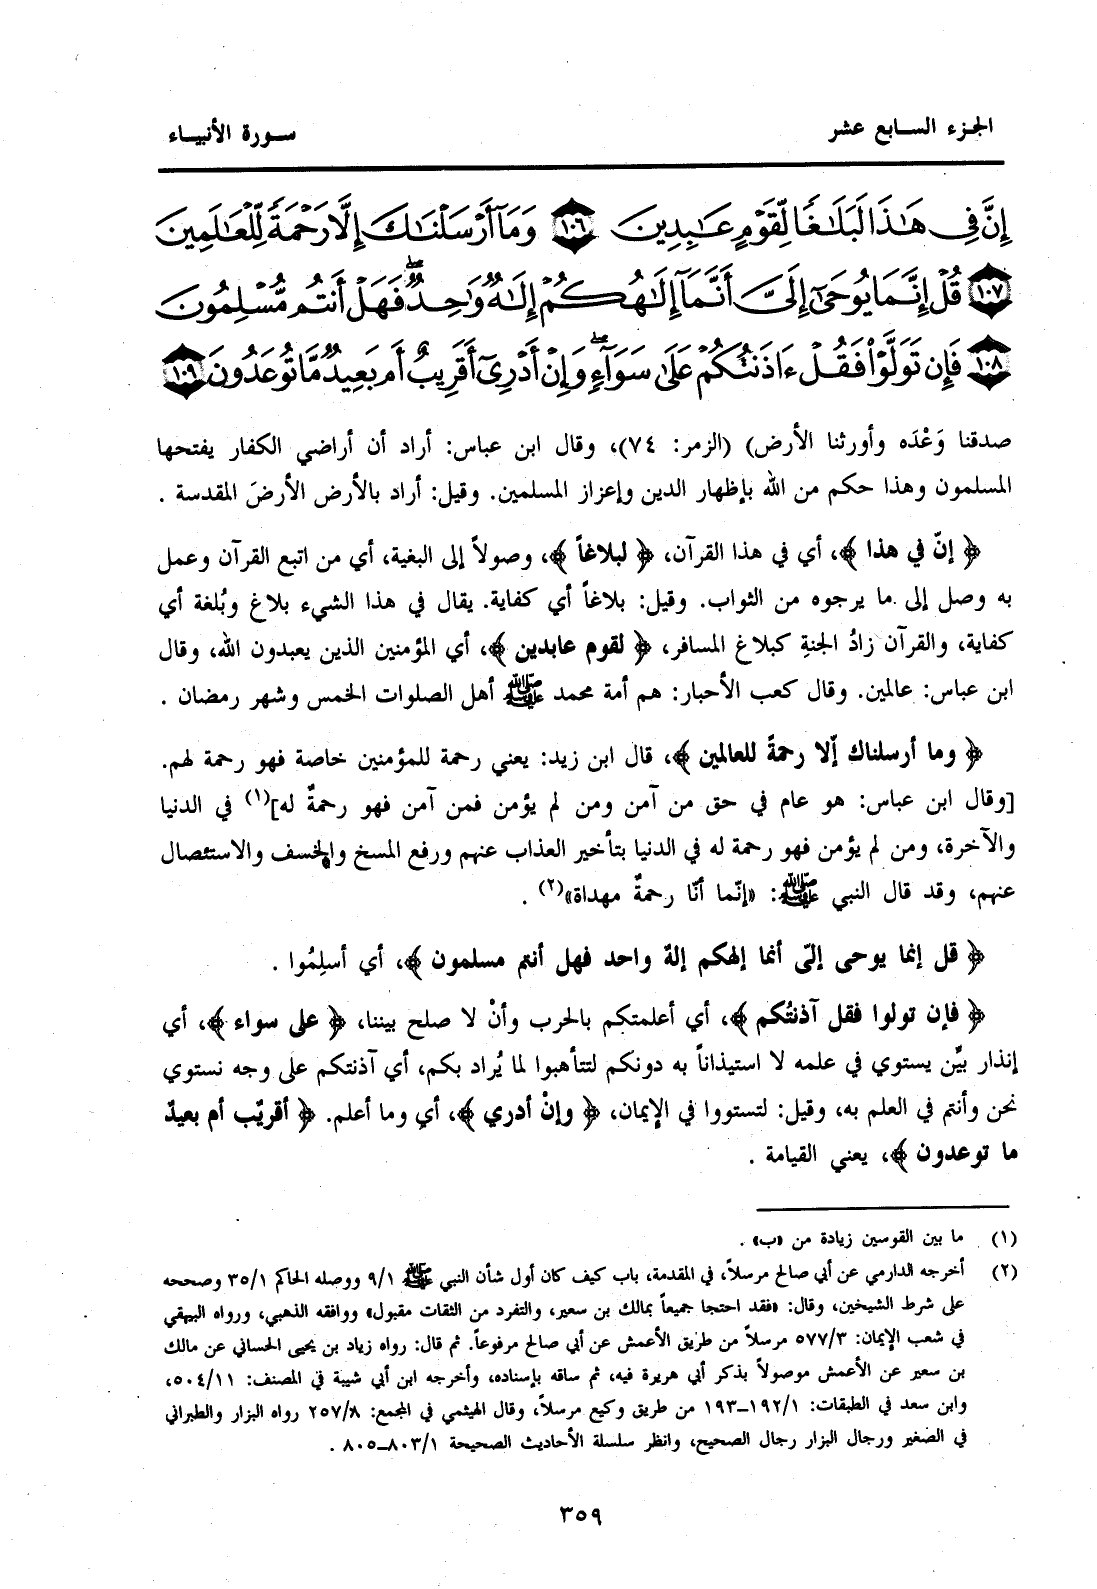 الجزء السابع عشر
سورة الأنبياء
إِنَّ فِى هَـٰذَا لَبَلَـٰغًا لِّقَوْمٍ عَـٰبِدِينَ ١٠٦ وَمَآ أَرْسَلْنَـٰكَ إِلَّا رَحْمَةً لِّلْعَـٰلَمِينَ
١٠٧ قُلْ إِنَّمَا يُوحَىٰٓ إِلَىَّ أَنَّمَآ إِلَـٰهُكُمْ إِلَـٰهٌ وَٰحِدٌ ۖ فَهَلْ أَنتُم مُّسْلِمُونَ
١٠٨ فَإِن تَوَلَّوْا۟ فَقُلْ ءَاذَنتُكُمْ عَلَىٰ سَوَآءٍ ۖ وَإِنْ أَدْرِىٓ أَقَرِيبٌ أَم بَعِيدٌ مَّا تُوعَدُونَ ١٠٩
صدقنا وَعْدَه وأورثنا الأرض) (الزمر: ٧٤)، وقال ابن عباس: أراد أن أراضي الكفار يفتحها
المسلمون وهذا حكم من الله بإظهار الدين وإعزاز المسلمين. وقيل: أراد بالأرض الأرضَ المقدسة .
﴿ إنّ في هذا ﴾، أي في هذا القرآن، ﴿ لبلاغاً ﴾، وصولاً إلى البغية، أي من اتبع القرآن وعمل
به وصل إلى ما يرجوه من الثواب. وقيل: بلاغاً أي كفاية. يقال في هذا الشيء بلاغ وبُلغة أي
كفاية، والقرآن زادُ الجنةِ كبلاغ المسافر، ﴿ لقوم عابدين ﴾، أي المؤمنين الذين يعبدون الله، وقال
ابن عباس: عالمين. وقال كعب الأحبار: هم أمة محمد ﷺ أهل الصلوات الخمس وشهر رمضان .
﴿ وما أرسلناك إلّا رحمةً للعالمين ﴾، قال ابن زيد: يعني رحمة للمؤمنين خاصة فهو رحمة لهم.
[وقال ابن عباس: هو عام في حق من آمن ومن لم يؤمن فمن آمن فهو رحمةٌ له](١) في الدنيا
والآخرة، ومن لم يؤمن فهو رحمة له في الدنيا بتأخير العذاب عنهم ورفع المسخ والخسف والاستئصال
عنهم، وقد قال النبي ﷺ: «إنّما أنّا رحمةٌ مهداة»(٢) .
﴿ قل إنما يوحى إليّ أنما إلهكم إلهٌ واحد فهل أنتم مسلمون ﴾، أي أسلِمُوا .
﴿ فإن تولوا فقل آذنتُكم ﴾، أي أعلمتكم بالحرب وأنْ لا صلح بيننا، ﴿ على سواء ﴾، أي
إنذار بيِّن يستوي في علمه لا استيذاناً به دونكم لتتأهبوا لما يُراد بكم، أي آذنتكم على وجه نستوي
نحن وأنتم في العلم به، وقيل: لتستووا في الإيمان، ﴿ وإنْ أدري ﴾، أي وما أعلم. ﴿ أقريّب أم بعيدٌ
ما توعدون ﴾، يعني القيامة .
(١) ما بين القوسين زيادة من «ب» .
(٢) أخرجه الدارمي عن أبي صالح مرسلاً، في المقدمة، باب كيف كان أول شأن النبي ﷺ ٩/١ ووصله الحاكم ٣٥/١ وصححه
على شرط الشيخين، وقال: «فقد احتجا جميعاً بمالك بن سعير، والتفرد من الثقات مقبول» ووافقه الذهبي، ورواه البيهقي
في شعب الإيمان: ٥٧٧/٣ مرسلاً من طريق الأعمش عن أبي صالح مرفوعاً. ثم قال: رواه زياد بن يحيى الحساني عن مالك
بن سعير عن الأعمش موصولاً بذكر أبي هريرة فيه، ثم ساقه بإسناده، وأخرجه ابن أبي شيبة في المصنف: ٥٠٤/١١،
وابن سعد في الطبقات: ١٩٢/١ـ١٩٣ من طريق وكيع مرسلاً، وقال الهيثمي في المجمع: ٢٥٧/٨ رواه البزار والطبراني
في الصغير ورجال البزار رجال الصحيح، وانظر سلسلة الأحاديث الصحيحة ٨٠٣/١ـ٨٠٥ .
٣٥٩